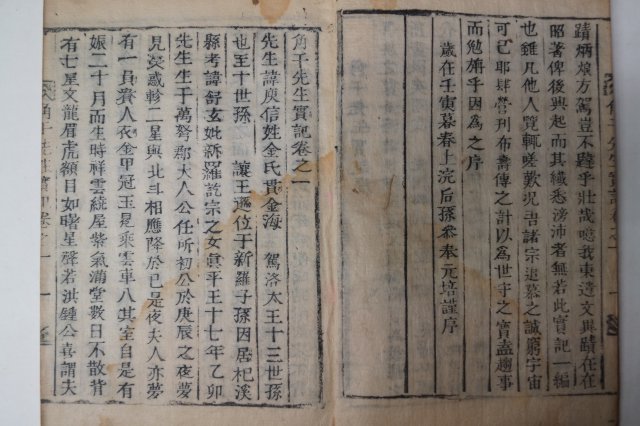 蹟炳烺方駕豈不韙乎壯哉噫我東遺文異蹟在在
昭著俾後興起而其纖悉滂沛者無若此實記一編
也雖凡他人覽輒嗟歎況吾諸宗追慕之誠窮宇宙
可已耶肆營刊布壽傳之計以爲世守之寶盍趨事
而勉旃乎因爲之序
歲在壬寅暮春上浣后孫參奉元培謹序
角干先生實記卷之一
先生諱庾信姓金氏貫金海 駕洛太王十三世孫
也至十世孫 讓王遜位于新羅子孫因居杞溪
縣考諱舒玄妣新羅訖宗之女眞平王十七年乙卯
先生生于萬弩郡大人公任所初公於庚辰之夜夢
見熒惑軫二星與北斗相應降於已是夜夫人亦夢
有一員貴人衣金甲冠玉是乘雲車八其室自是有
娠二十月而生時祥雲繞屋紫氣滿堂數日不散背
有七星文龍眉虎額目如曙星聲若洪鍾公喜謂夫